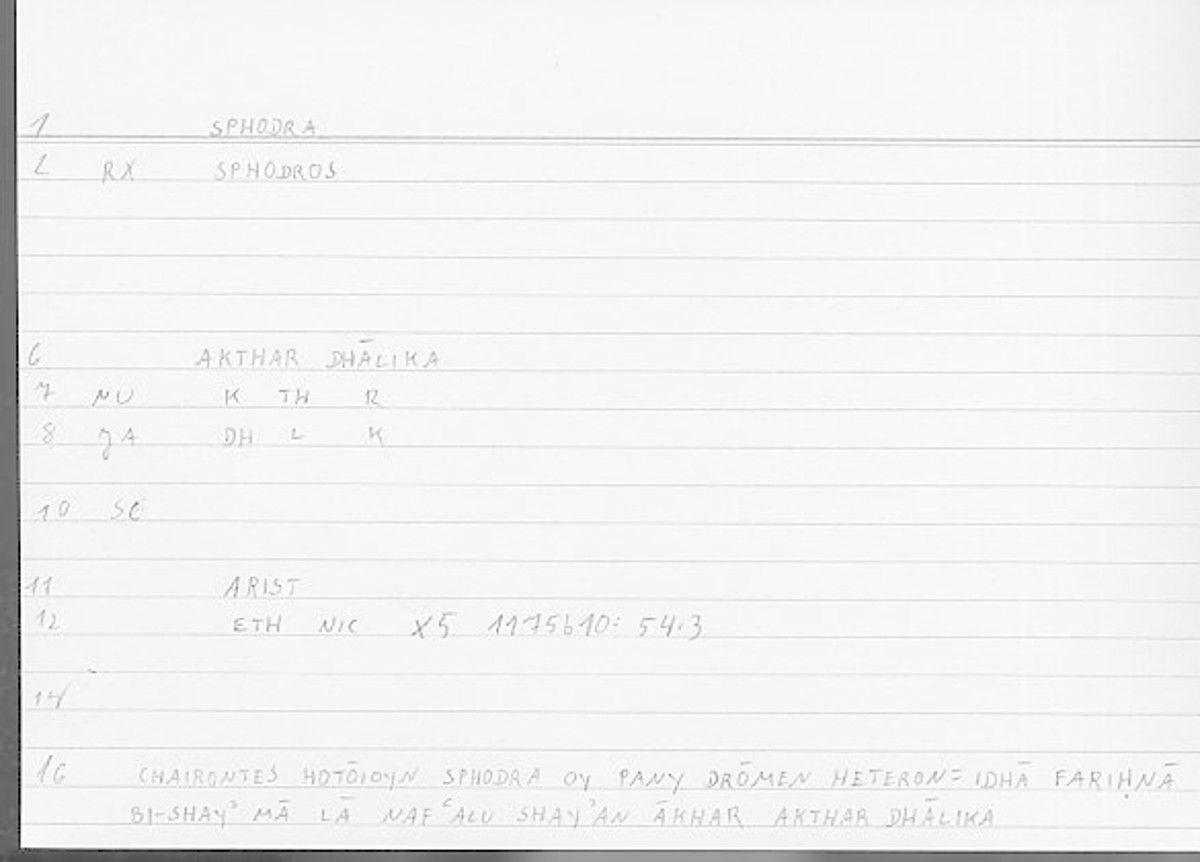 1 SPHODRA
2 RX SPHODROS
6 AKTHAR DHĀLIKA
7 NU K TH R
8 JA DH L K
10 SE
11 ARIST
12 ETH NIC X5 1175b10: 54.3
14
16 CHAIRONTES HOTŌIOYN SPHODRA OY PANY DRŌMEN HETERON= IDHĀ FARIḤNĀ
BI-SHAYʾ MĀ LĀ NAFʿALU SHAYʾAN ĀKHAR AKTHAR DHĀLIKA